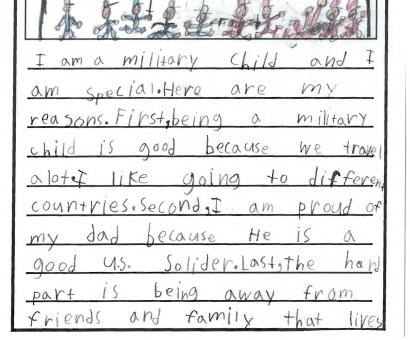 I am a military child and I
am special.Here are my
reasons.First,being a military
child is good because we travel
alot.I like going to different
countries.Second,I am proud of
my dad because He is a
good U.S. Solider.Last,the hard
part is being away from
friends and family that lives